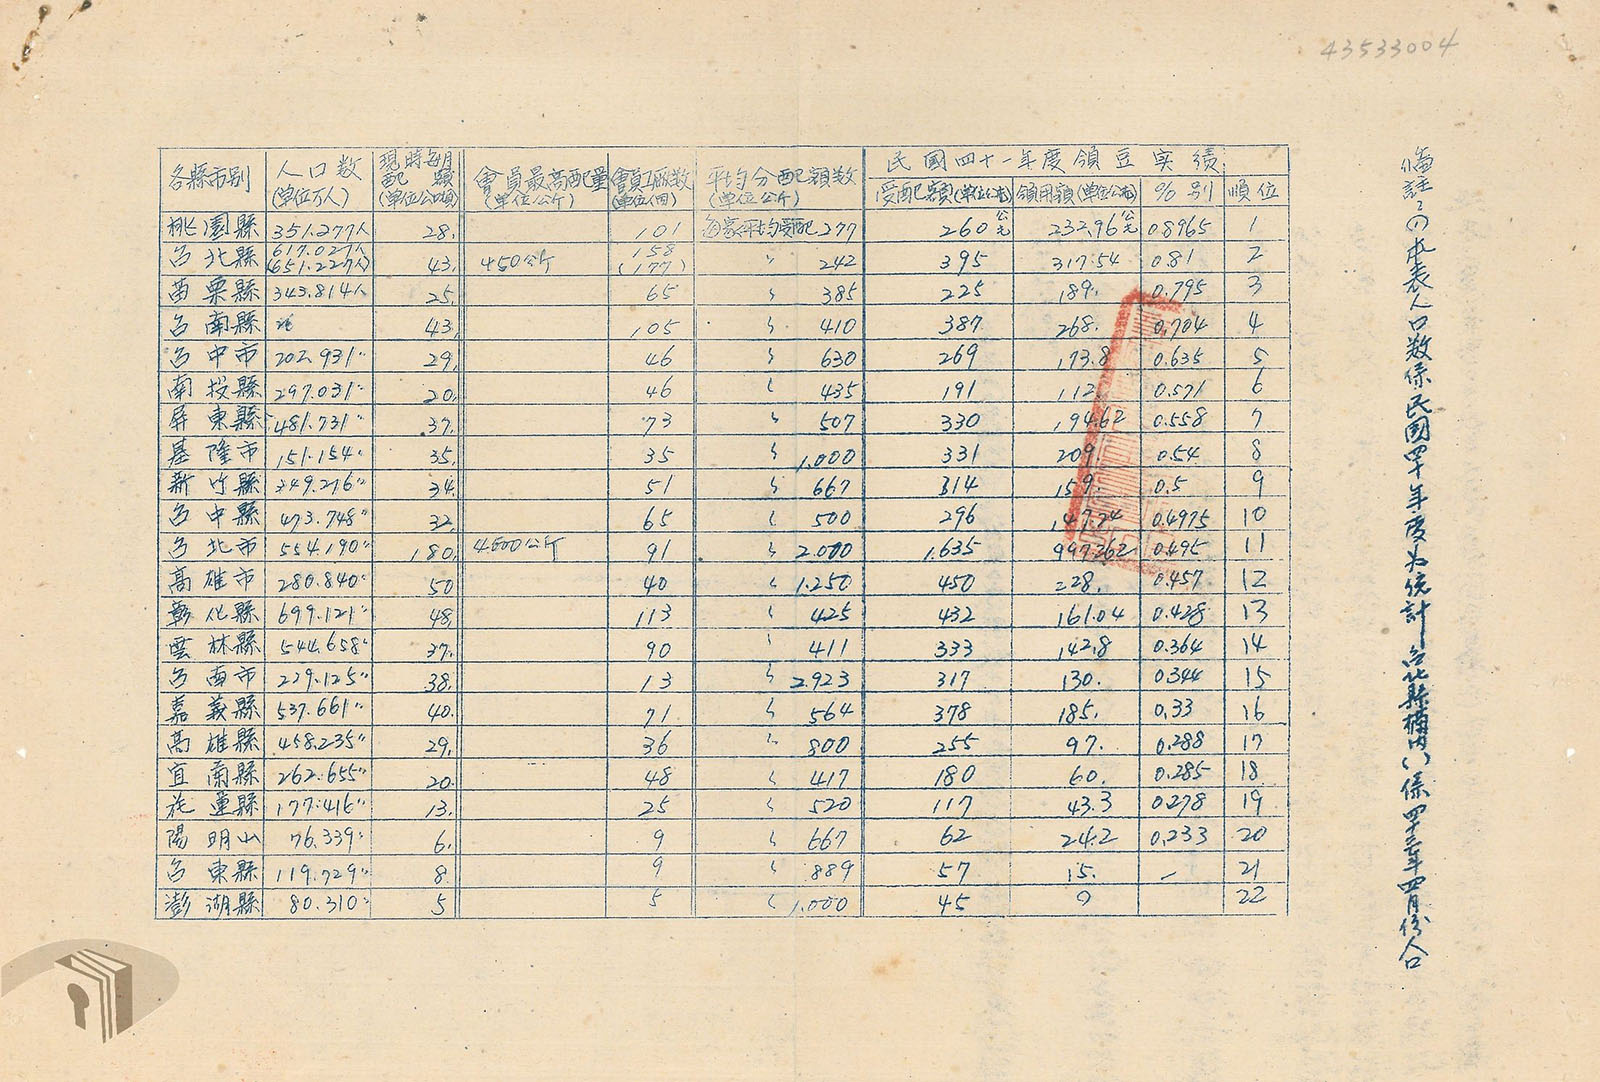 43533004
各縣市別 人口数(單位万人) 現時每月配額(單位公噸) 會員最高配量(單位公斤) 會員工廠数(單位個) 平均分配額数(單位公斤) 民國四十一年度領豆実績:
受配額(單位公噸) 領用額(單位公噸) %别 順位
桃園縣 351.277人 28. 101 每家平均受配 277 260公屯 232.96公屯 0.8965 1
台北縣 617.027人 (651.227人) 43. 450公斤 158 (177) 〃 242 395 317.54 0.81 2
苗栗縣 343.814人 25. 65 〃 385 225 189. 0.795 3
台南縣 43. 105 〃 410 387 268. 0.704 4
台中市 202.931〃 29. 46 〃 630 269 173.8 0.635 5
南投縣 297.031〃 20. 46 〃 435 191 112. 0.571 6
屏東縣 481.731〃 37. 73 〃 507 330 194.62 0.558 7
基隆市 151.154〃 35. 35 〃 1.000 331 209. 0.54 8
新竹縣 349.276〃 34. 51 〃 667 314 159. 0.5 9
台中縣 473.748〃 32. 65 〃 500 296 147.74 0.4975 10
台北市 554.190〃 180. 4500公斤 91 〃 2.000 1.635 997.262 0.495 11
高雄市 280.840〃 50 40 〃 1.250 450 228. 0.457 12
彰化縣 699.121〃 48. 113 〃 425 432 161.04 0.428 13
雲林縣 544.658〃 37. 90 〃 411 333 142.8 0.364 14
台南市 229.125〃 38. 13 〃 2.923 317 130. 0.344 15
嘉義縣 537.661〃 40. 71 〃 564 378 185. 0.33 16
高雄縣 458.235〃 29. 36 〃 800 255 97. 0.288 17
宜蘭縣 262.655〃 20. 48 〃 417 180 60. 0.285 18
花蓮縣 177.416〃 13. 25 〃 520 117 43.3 0.278 19
陽明山 76.339〃 6. 9 〃 667 62 24.2 0.233 20
台東縣 119.729〃 8. 9 〃 889 57 15. – 21
澎湖縣 80.310〃 5 5 〃 1.000 45 0 22
備註:(1)本表人口数係民國四十年度为統計—台北縣欄內( )係四十三年四月份人口